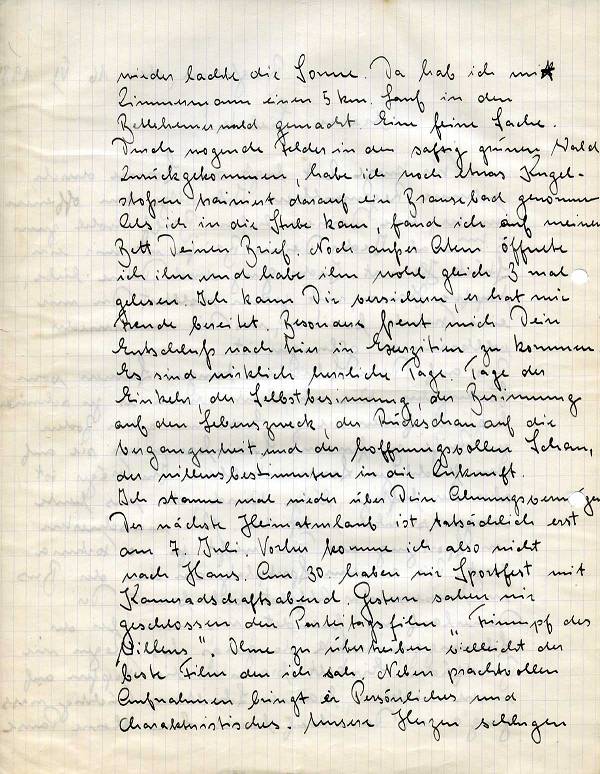 wieder lachte die Sonne. Da hab ich mit
Zimmermann einen 5 km. Lauf in den
Bethlehemerwald gemacht. Eine feine Sache.
Durch wogende Felder in den saftig grünen Wald
Zurückgekommen, habe ich noch etwas Kugel-
stoßen trainiert darauf ein Brausebad genommen
Als ich in die Stube kam, fand ich auf meinem
Bett Deinen Brief. Noch außer Atem öffnete
ich ihn und habe ihn wohl gleich 3 mal
gelesen. Ich kann Dir versichern, er hat mir
Freude bereitet. Besonders freut mich Dein
Entschluß nach hier in Exerzitien zu kommen
Es sind wirklich herrliche Tage. Tage der
Einkehr, der Selbstbesinnung, der Besinnung
auf den Lebenszweck, der Rückschau auf die
Vergangenheit und der hoffnungsvollen Schau,
der willensbestimmten in die Zukunft.
Ich staune mal wieder über Dein Ahnungsvermögen
Der nächste Heimaturlaub ist tatsächlich erst
am 7. Juli. Vorher komme ich also nicht
nach Haus. Am 30. haben wir Sportfest mit
Kameradschaftsabend. Gestern sahen wir
geschlossen den Parteitagsfilm „Triumpf des
Willens". Ohne zu übertreiben vielleicht der
beste Film den ich sah. Neben prachtvollen
Aufnahmen bringt er Persönliches und
Charakteristisches. Unsere Herzen schlugen